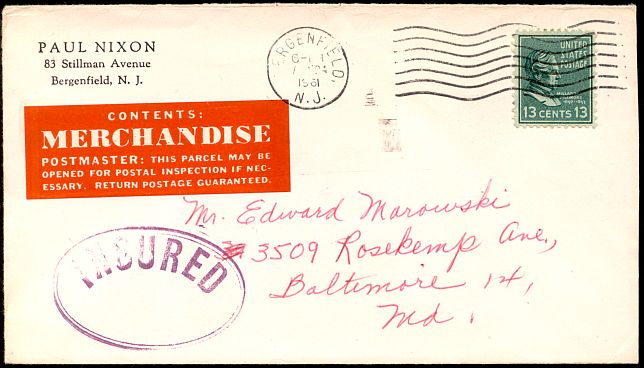 PAUL NIXON
83 Stillman Avenue
Bergenfield, N. J.
ERGENFIELD
1961
N.J.
UNITED
STATES
POSTAGE
MILLARD
FILLMORE
13 CENTS 13
CONTENTS:
MERCHANDISE
POSTMASTER: THIS PARCEL MAY BE
OPENED FOR POSTAL INSPECTION IF NEC-
ESSARY. RETURN POSTAGE GUARANTEED.
Mr. Edward Marowski
3509 Rosekemp Ave.,
Baltimore 14,
Md.
INSURED